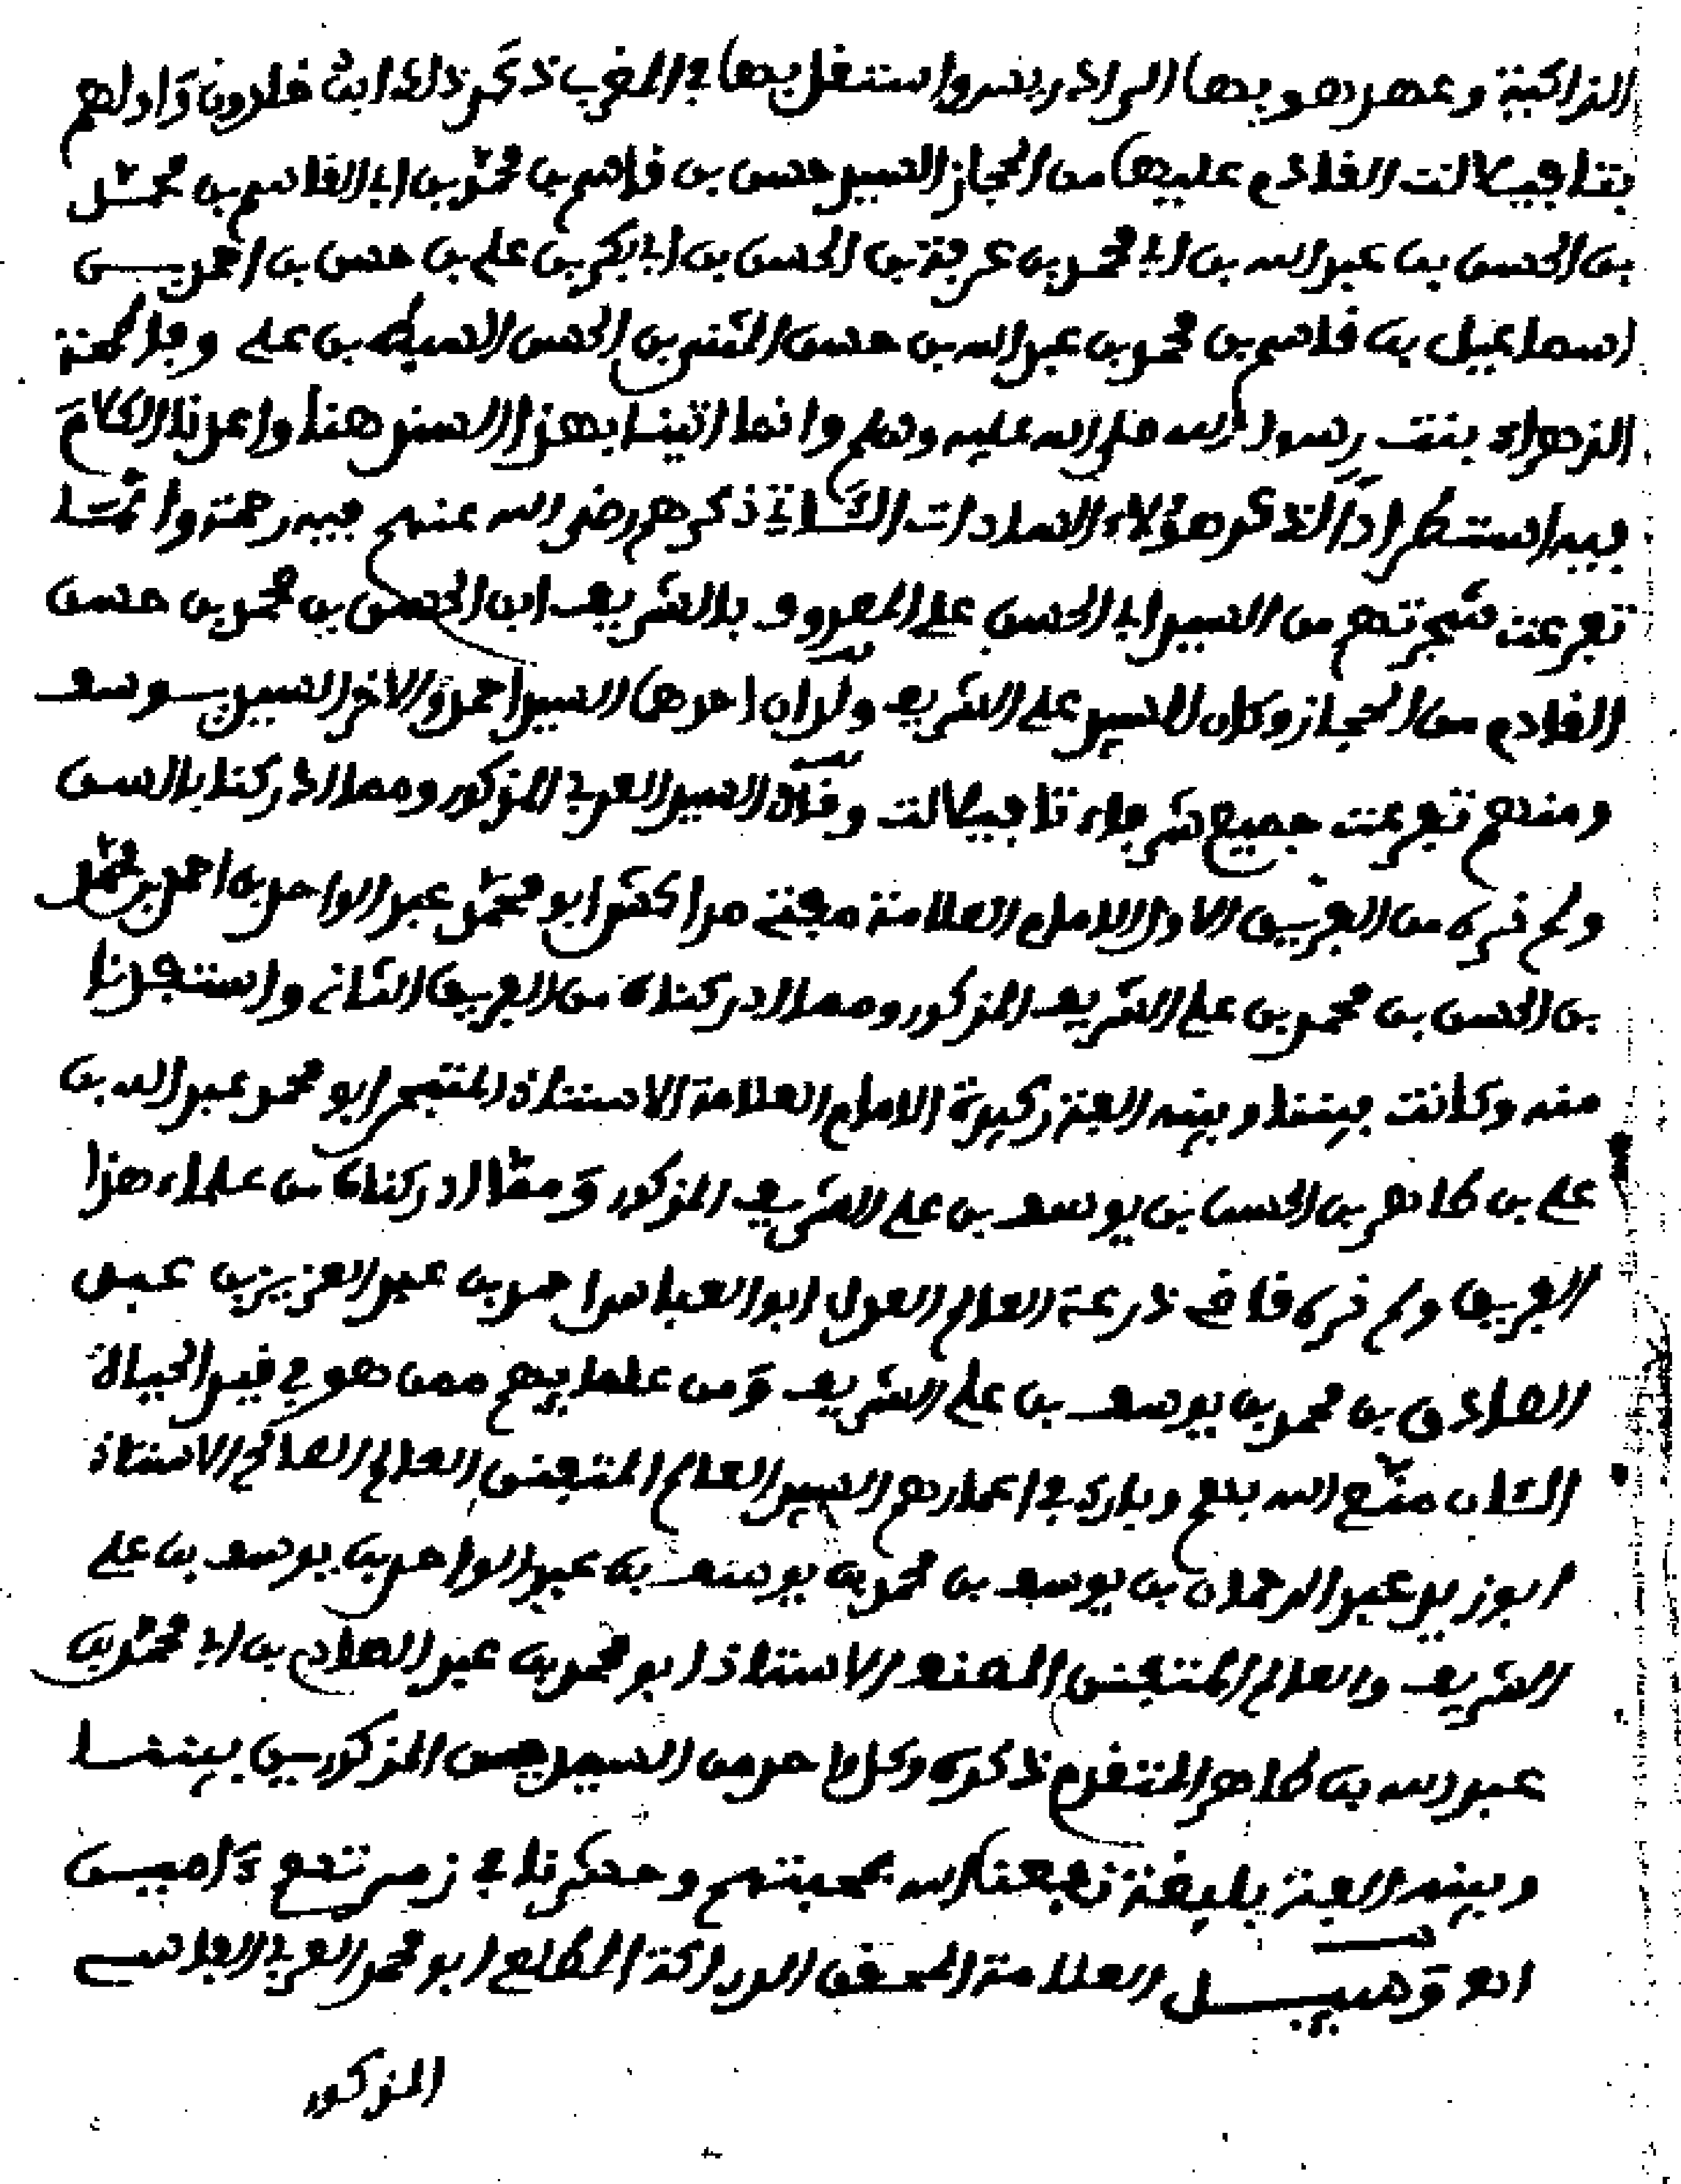 الزاكية وعهد هو بها الى ادريس واستقل بها في المغرب ذكر ذلك ابن خلدون واولهم
بتافيلالت القادم عليها من الحجاز السيد حسن بن قاسم بن محمد بن ابي القاسم بن محمد
بن الحسن بن عبد الله بن ابي محمد بن عرفة بن الحسن بن ابي بكر بن علي بن حسن بن احمد بن
اسماعيل بن قاسم بن محمد بن عبد الله بن حسن المثنى بن الحسن السبط بن علي وفاطمة
الزهراء بنت رسول الله صلى الله عليه وسلم وانما اتينا بهذا السند هنا واعدنا الكلام
فيه استطرادا لذكر هؤلاء السادات الثلاثة ذكرهم رضي الله عنهم فيه رحمة وانما
تفرعت شجرتهم من السيد ابي الحسن علي المعروف بالشريف ابن الحسن بن محمد بن حسن
القادم من الحجاز وكان للسيد علي الشريف ولدان احدهما السيد احمد والاخر السيد يوسف
ومنهم تفرعت جميع شرفاء تافيلالت وقال السيد العربي المذكور ومما ادركنا بالسن
ولم نره من الفريق الاول الامام العلامة مفتي مراكش ابو محمد عبد الواحد بن احمد بن محمد
بن الحسن بن محمد بن علي الشريف المذكور ومما ادركناه من الفريق الثاني واستفدنا
منه وكانت بيننا وبينه الفة كبيرة الامام العلامة الاستاذ المتبحر ابو محمد عبد الله بن
علي بن طاهر بن الحسن بن يوسف بن علي الشريف المذكور ومما ادركناه من علماء هذا
الفريق ولم نره قاضي درعة العالم العدل ابو العباس احمد بن عبد العزيز بن عبد
الصادق بن محمد بن يوسف بن علي الشريف ومن علمايهم ممن هو في قيد الحياة
الئان متع الله بهم وبارك في اعمارهم السيد العالم المتفنن العالم الصالح الاستاذ
ابو زيد عبد الرحمان بن يوسف بن محمد بن يوسف بن عبد الواحد بن يوسف بن علي
الشريف والعالم المتفنن المصنف الاستاذ ابو محمد بن عبد الهادي بن ابي محمد بن
عبد الله بن طاهر المتقدم ذكره وكل واحد من السيدين المذكورين بيننا
وبينه الفة بليغة نفعنا الله بمحبتهم وحشرنا في زمرتهم ءامين
انه وقيل العلامة المحقق الدراكة المطلع ابو محمد العربي الفاسي
المذكور